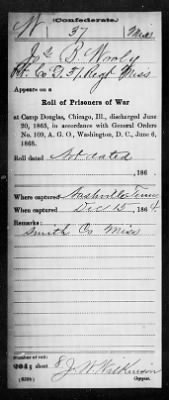 (Confederate.)
W 37 Miss
Jas B Wooly
Pt. Co I, 37 Regt Miss
Appears on a
Roll of Prisoners of War
at Camp Douglas, Chicago, Ill., discharged June
20, 1865, in accordance with General Orders
No. 109, A. G. O., Washington, D. C., June 6,
1865.
Roll dated Not dated
186 .
Where captured Nashville Tenn
When captured Dec 15, 1864.
Remarks:
Smith Co Miss
Number of roll:
sheet
J. W. Wilkinson
(639b) Copyist.